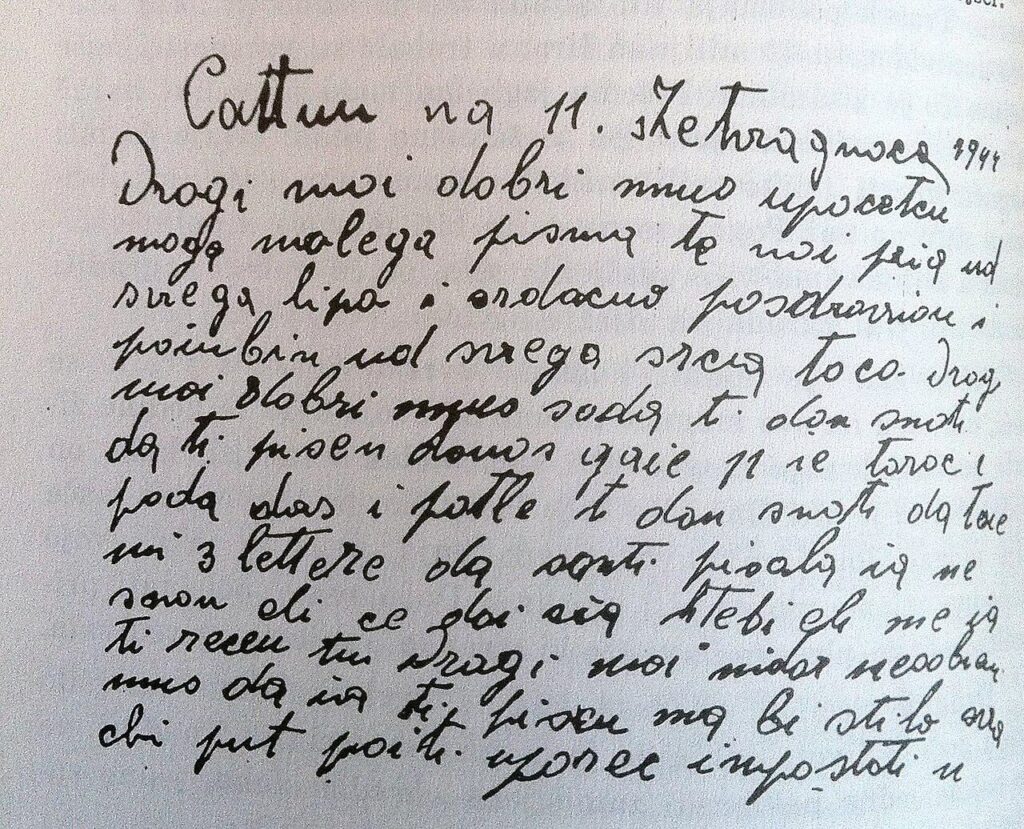 Cattun na 11. Zetvragnoca 1944
Drogi moi dobri muuo upocetku
moga malega pisma ta noi pria ud
svega lipa i ardacno posdravion i
poiubin ud svega srca toco. Drog
moi dobri muuo soda ti don snoti
da ti pisen donos gaie 11 ie toroc i
poda dos i potle t don snoti da tore
mi 3 lettere da sonti pisala ia ne
soron di ce doi cia Stebi gli ne ia
ti recen tu Drogi moi nidor
muo da ia ti piscu ma bi stilo
cbi put poiti uporec impostoti u